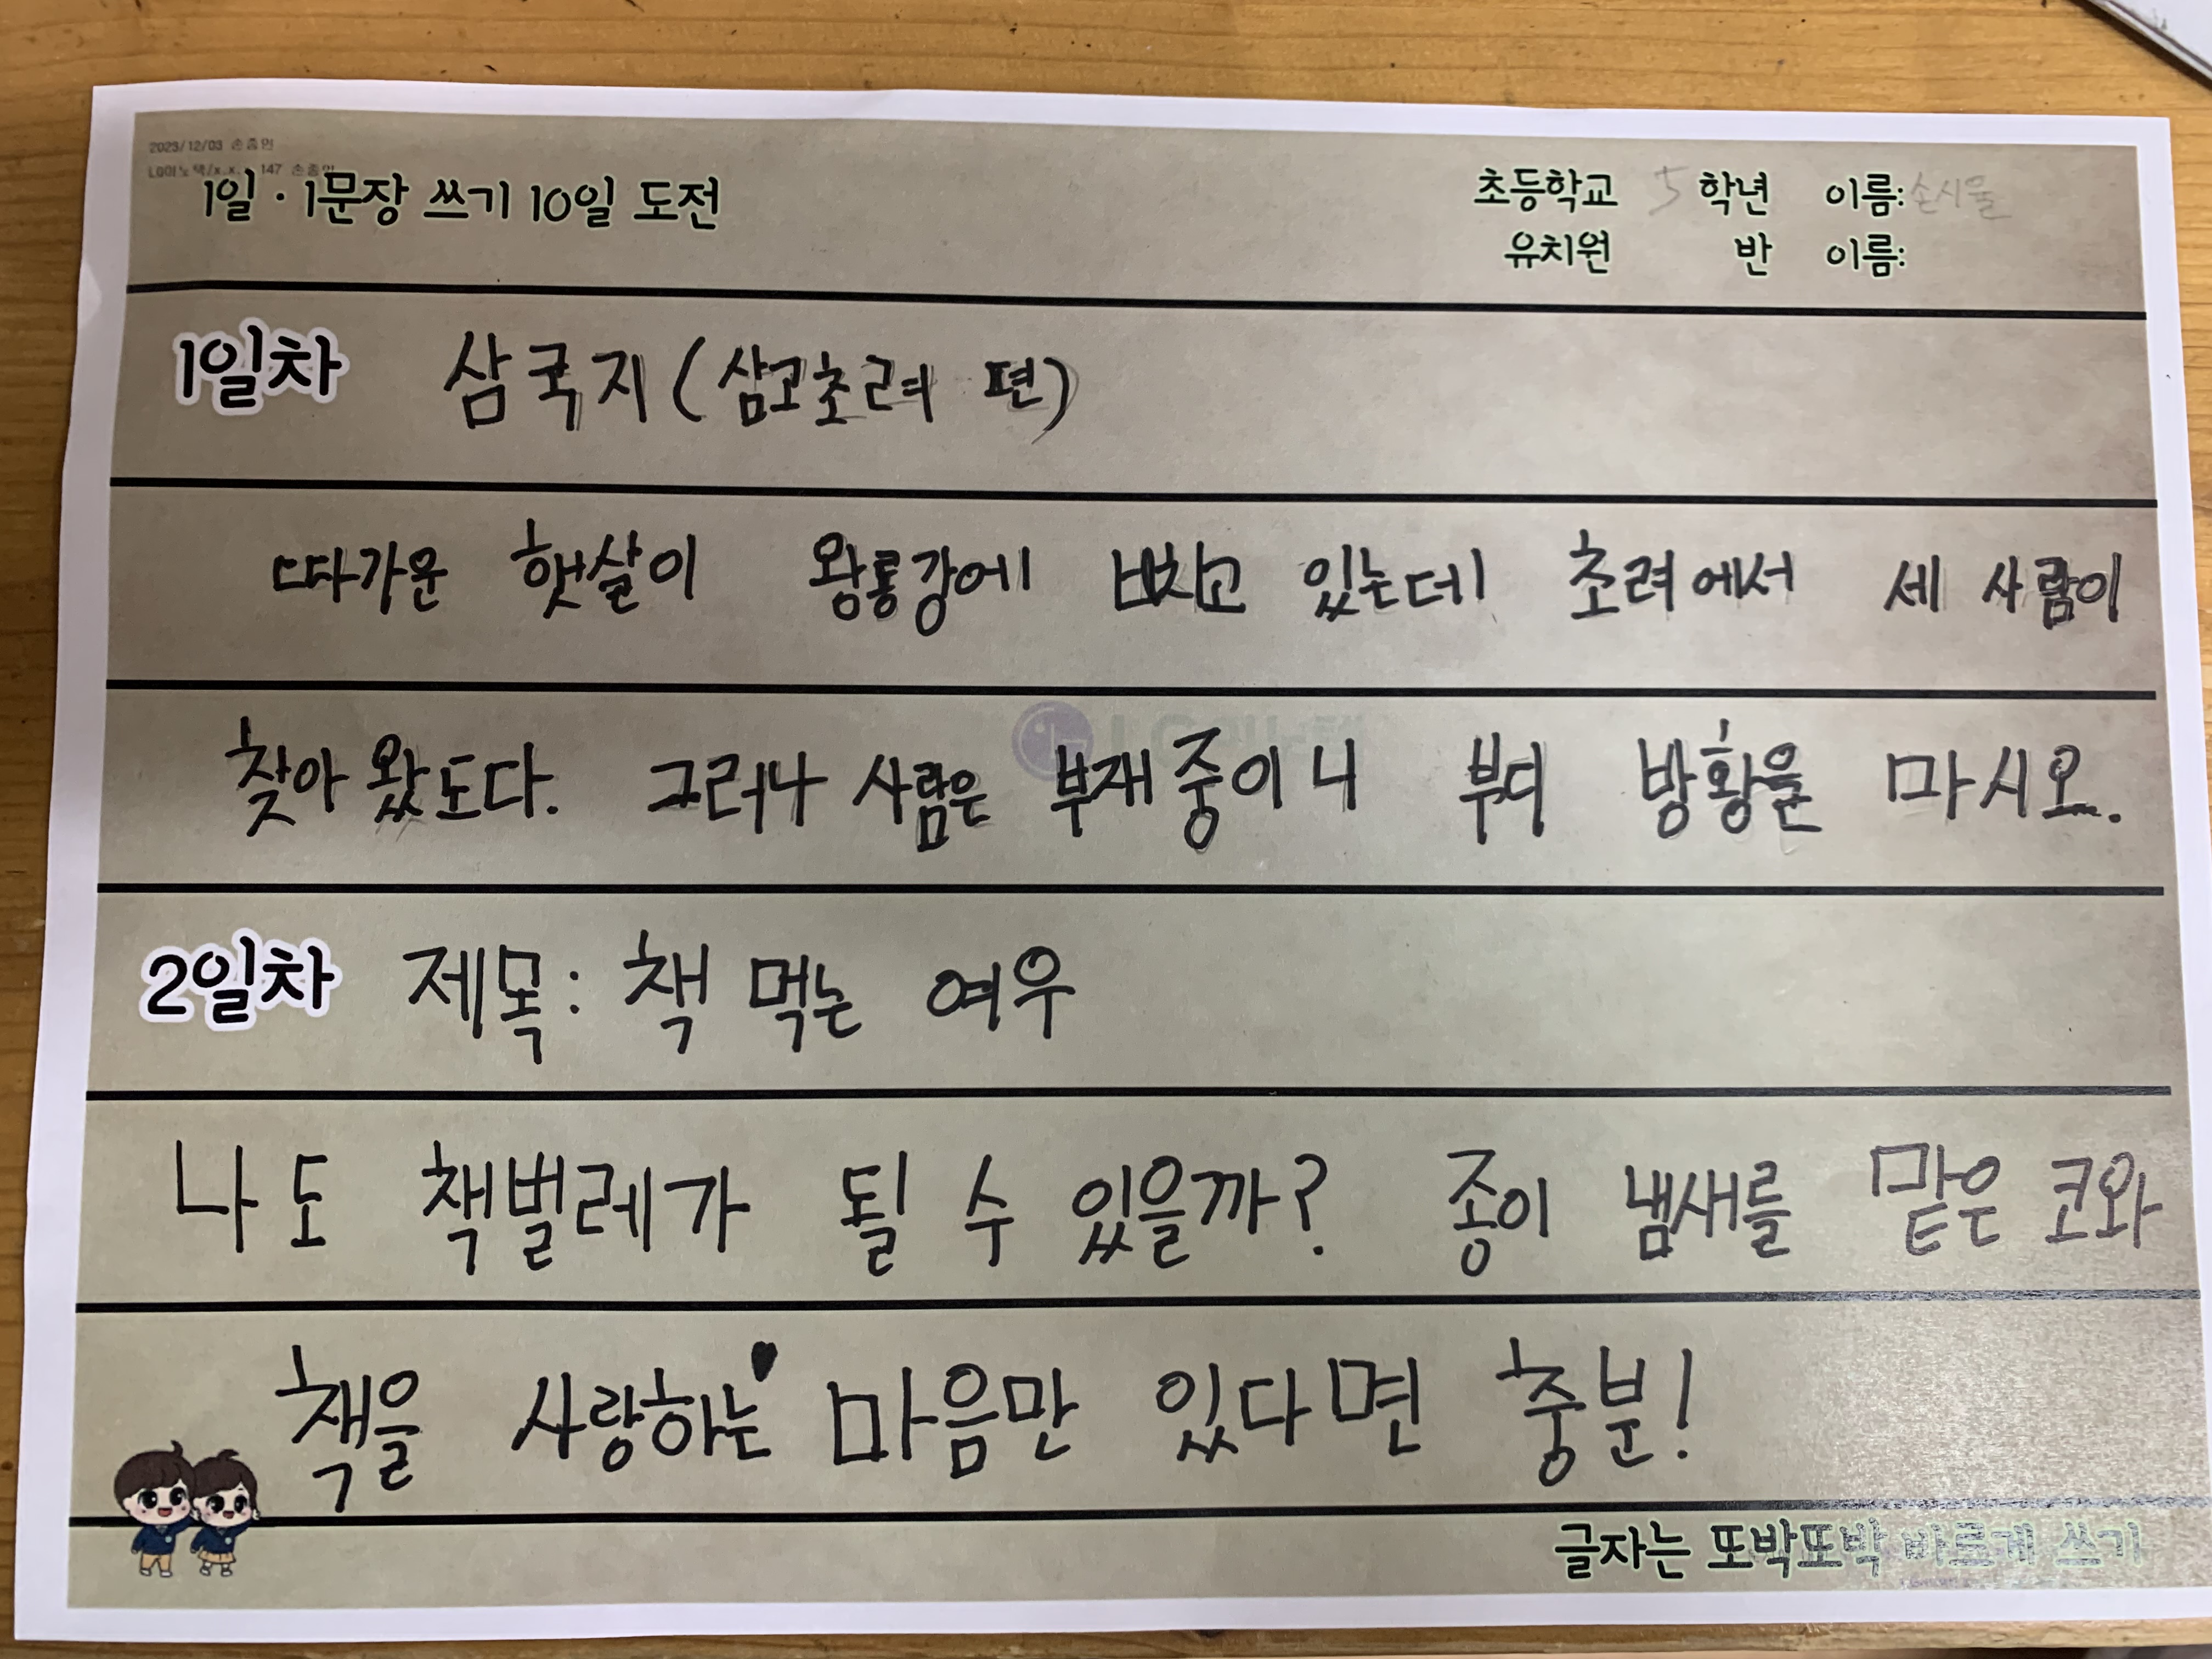 2023/12/03 손종민
147 손종민
1일·1문장 쓰기 10일 도전
초등학교 5 학년 이름: 손시율
유치원 반 이름:
1일차 삼국지(삼고초려 편)
따가운 햇살이 왕룡강에 비치고 있는데 초려에서 세 사람이
찾아 왔도다. 그러나 사람은 부재중이니 부디 방황을 마시오.
2일차 제목: 책 먹는 여우
나도 책벌레가 될 수 있을까? 종이 냄새를 맡은 코와
책을 사랑하는 마음만 있다면 충분!
글자는 또박또박 바르게 쓰기